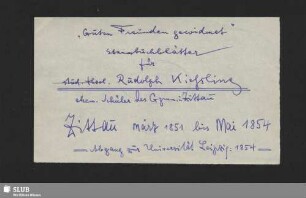 „Guten Freunden gewidmet"
Stammbuchblätter
für
stud. theol. Rudolph Kießling
ehem. Schüler des Gymn. Zittau
Zittau März 1851 bis Mai 1854
Abgang zur Universität Leipzig. 1854
SLUB